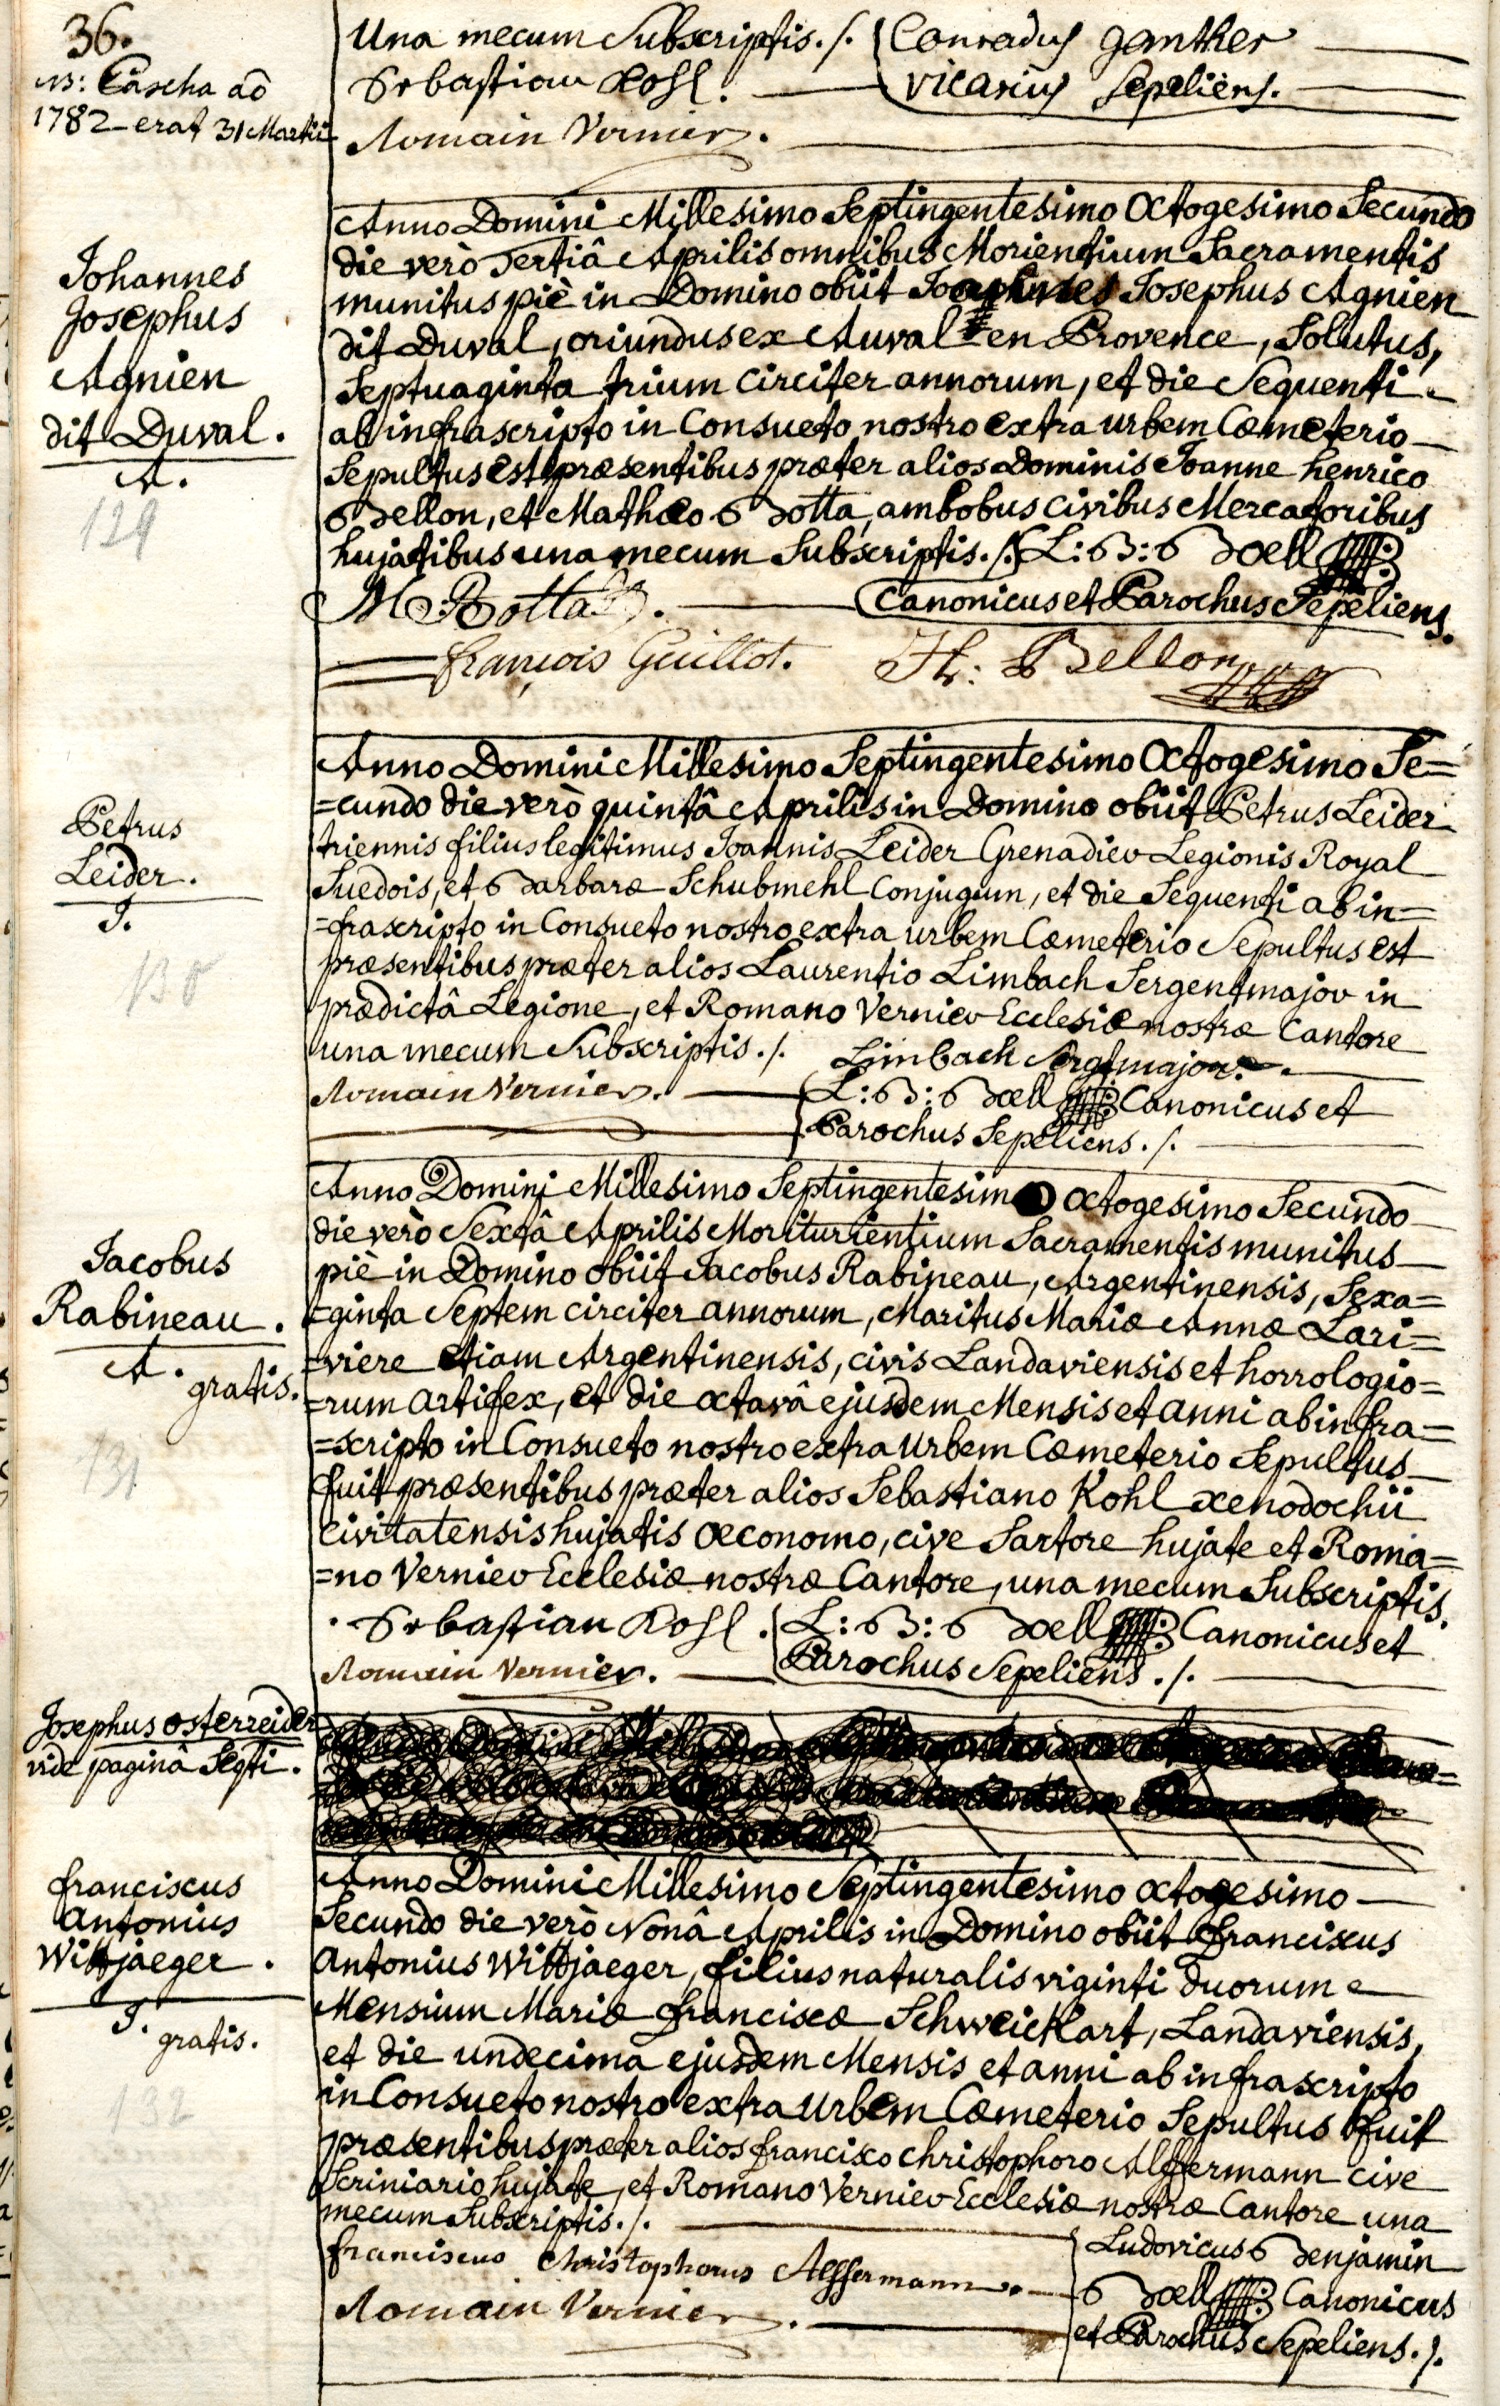 36.
NB: Pascha aō
1782 erat 31 Martii
Una mecum Subscriptis ./.
Conradus Ganther
Sebastian Kohl.
vicarius Sepeliens.
Romain Vernier.
Johannes
Josephus
Agnien
dit Duval.
A.
129
Anno Domini Millesimo Septingentesimo Octogesimo Secundo
die verò Tertiâ Aprilis omnibus Morientium Sacramentis
munitus piè in Domino obiit Joannes Josephus Agnien
dit Duval, oriundus ex Auval en Provence, Solutus,
Septuaginta trium circiter annorum, et die Sequenti
ab infrascripto in Consueto nostro extra urbem Cœmeterio
Sepultus est præsentibus præter alios Dominis Joanne henrico
Bellon, et Mathæo Botta, ambobus civibus Mercatoribus
hujatibus una mecum Subscriptis ./. L: B: Boell
M. Botta.
Canonicus et Parochus Sepeliens.
françois Guillot.
H: Bellon
Petrus
Leider.
J.
130
Anno Domini Millesimo Septingentesimo Octogesimo Se=
=cundo die verò quintâ Aprilis in Domino obiit Petrus Leider
triennis filius legitimus Joannis Leider Grenadier Legionis Royal
Suedois, et Barbaræ Schubmehl Conjugum, et die Sequenti ab in=
=frascripto in Consueto nostro extra urbem Cœmeterio Sepultus est
præsentibus præter alios Laurentio Limbach Sergentmajor in
prædictâ Legione, et Romano Vernier Ecclesiæ nostræ Cantore
una mecum Subscriptis ./.
Limbach Sergtmajor.
Romain Vernier.
L: B: Boell Canonicus et
Parochus Sepeliens ./.
Jacobus
Rabineau.
A.
gratis.
131
Anno Domini Millesimo Septingentesimo Octogesimo Secundo
die verò Sextâ Aprilis Moriturientium Sacramentis munitus
piè in Domino obiit Jacobus Rabineau, Argentinensis, Sexa=
=ginta Septem circiter annorum, Maritus Mariæ Annæ Lari=
=viere etiam Argentinensis, civis Landaviensis et horrologio=
=rum artifex, et die octavâ ejusdem Mensis et anni ab infra=
=scripto in Consueto nostro extra urbem Cœmeterio Sepultus
fuit præsentibus præter alios Sebastiano Kohl xenodochii
civitatensis hujatis œconomo, cive Sartore hujate et Roma=
=no Vernier Ecclesiæ nostræ Cantore, una mecum Subscriptis.
Sebastian Kohl.
L: B: Boell Canonicus et
Romain Vernier.
Parochus Sepeliens ./.
Josephus Osterreider
vide paginâ Seqti.
franciscus
Antonius
Wittjaeger.
J.
gratis.
132
Anno Domini Millesimo Septingentesimo octogesimo
Secundo die verò Nonâ Aprilis in Domino obiit franciscus
Antonius Wittjaeger, filius naturalis viginti duorum
Mensium Mariæ franciscæ Schweickart, Landaviensis,
et die undecima ejusdem Mensis et anni ab infrascripto
in Consueto nostro extra urbem Cœmeterio Sepultus fuit
præsentibus præter alios francisco christophoro Alffermann cive
Scriniario hujate, et Romano Vernier Ecclesiæ nostræ Cantore una
mecum Subscriptis ./.
franciscus Christophorus Alffermann.
Ludovicus Benjamin
Boell Canonicus
Romain Vernier.
et Parochus Sepeliens ./.